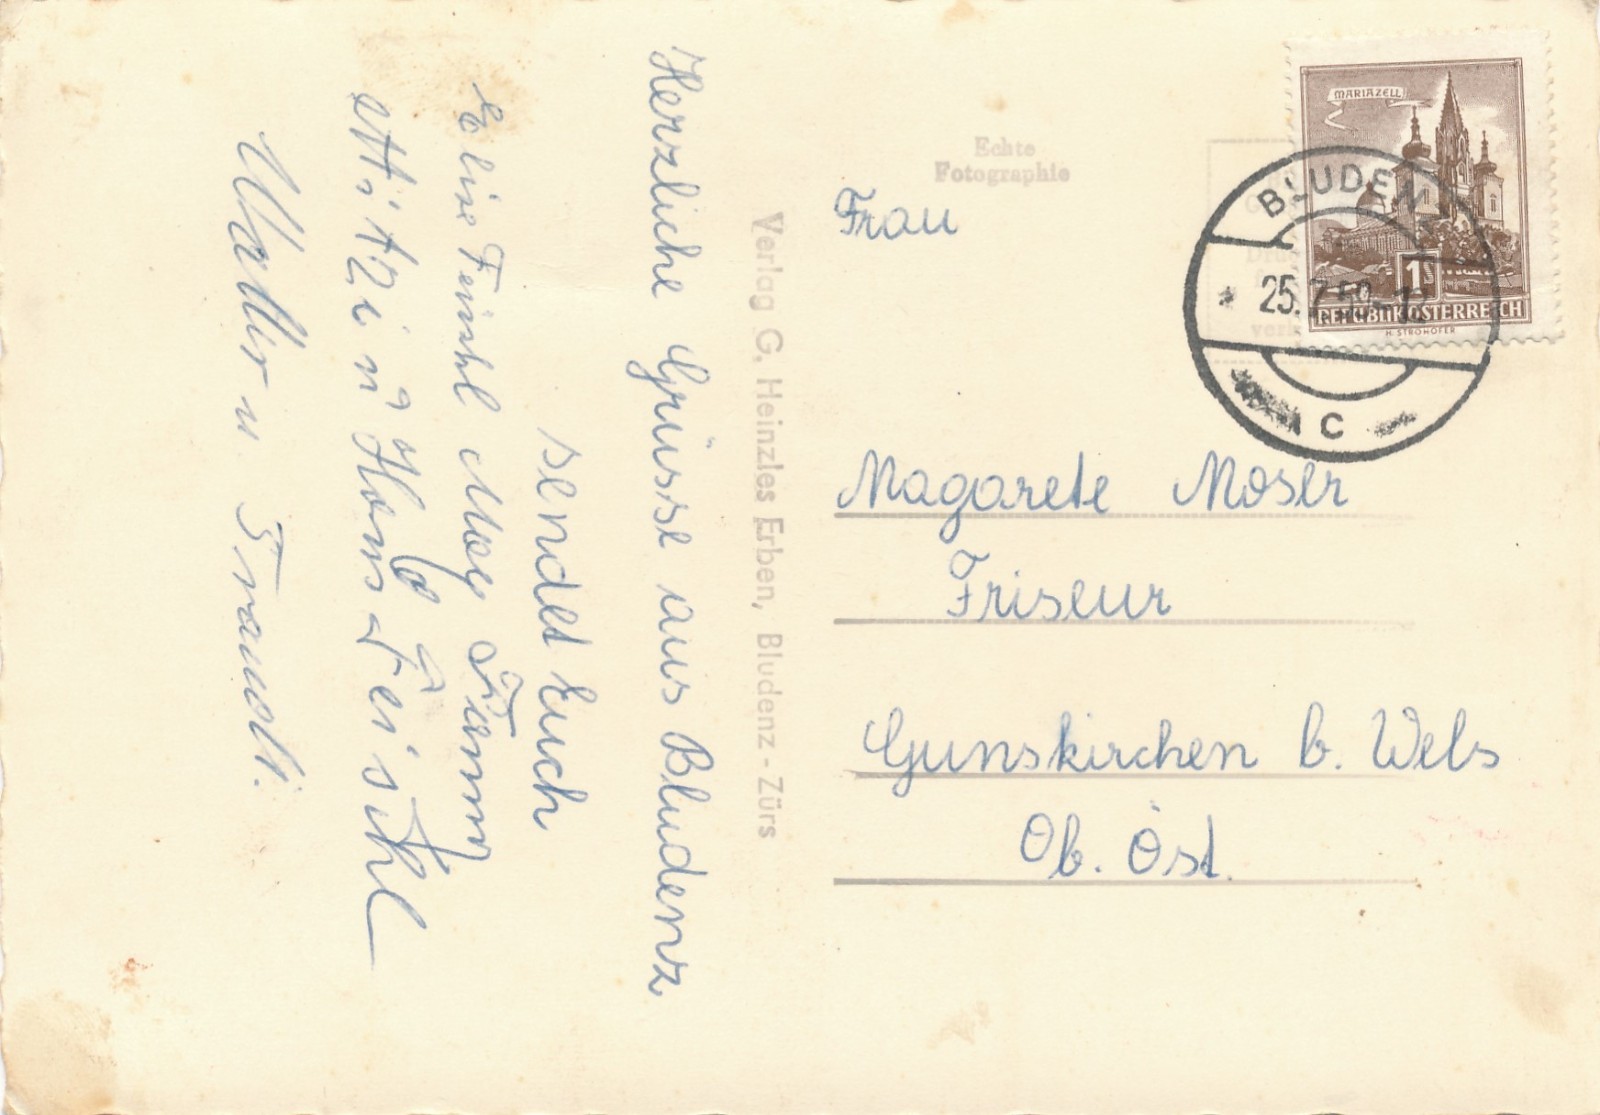 Herzliche Grüsse aus Bludenz
sendet Euch
Elise Feischl
Mitzi u Hans Feischl
Walter u. Traudl.
Verlag G. Heinzles Erben, Bludenz - Zürs
Echte
Fotographie
MARIAZELL
1S
REPUBLIK ÖSTERREICH
H. STROHOFER
BLUDENZ
* 25.7.59-12
C
Frau
Magarete Moser
Friseur
Gunskirchen b. Wels
Ob. Öst.